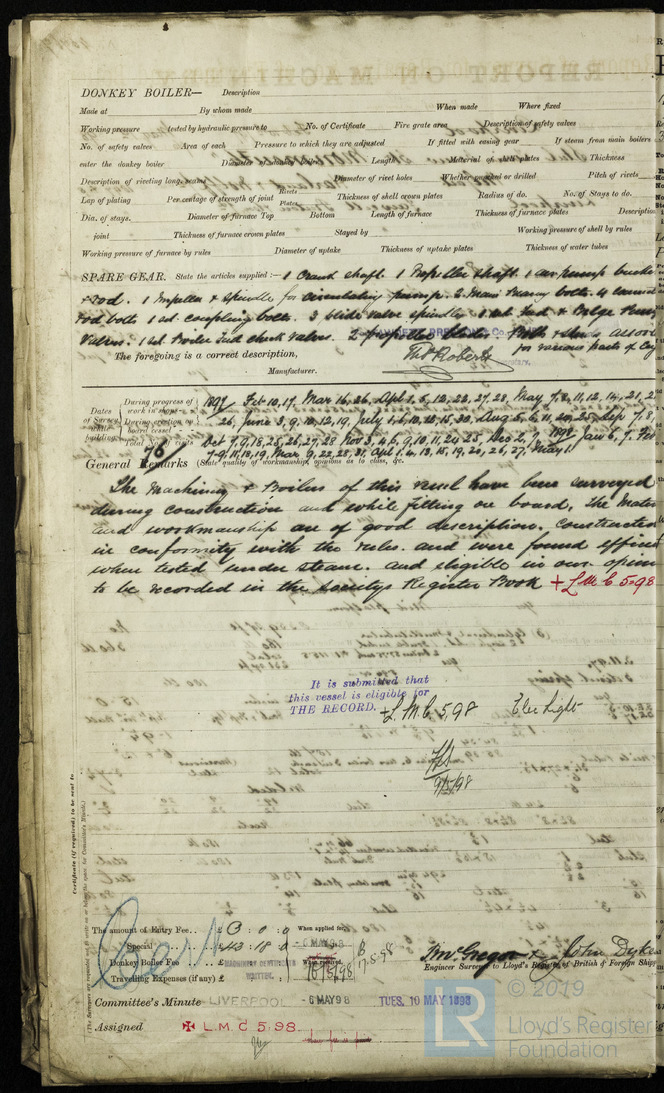 DONKEY BOILER— Description
Made at By whom made When made Where fixed
Working pressure tested by hydraulic pressure to No. of Certificate Fire grate area Description of safety valves
No. of safety valves Area of each Pressure to which they are adjusted If fitted with easing gear If steam from main boilers
enter the donkey boiler Diameter Length Material of shell plates Thickness
Description of riveting long. seams Diameter of rivet holes Whether punched or drilled Pitch of rivets
Lap of plating Percentage of strength of joint Rivets Plates Thickness of shell crown plates Radius of do. No. of Stays to do.
Dia. of stays. Diameter of furnace Top Bottom Length of furnace Thickness of furnace plates Description
joint Thickness of furnace crown plates Stayed by Working pressure of shell by rules
Working pressure of furnace by rules Diameter of uptake Thickness of uptake plates Thickness of water tubes
SPARE GEAR. State the articles supplied:— 1 Crank shaft. 1 Propeller shaft. 1 air pump bucket
& rod. 1 Impeller & spindle for circulating pump. 2 Main Bearing bolts. 4 connect
rod bolts 1 set coupling bolts. 3 slide valve spindles 1 set Feed & Bilge Pump
Valves. 1 set Boiler Feed check valves. 2 propeller blades. Bolts &
for various parts of
The foregoing is a correct description,
Thos Roberts
Secretary.
Manufacturer.
Dates of Survey while building
During progress of work in shops— 1897 Feb 10, 17, Mar 16, 26, Apl 1, 5, 12, 22, 27, 28, May 7, 8, 11, 12, 14, 21, 2
During erection on board vessel— 26, June 3, 9, 10, 12, 19, July 1, 6, 10, 20, 15, 30, Aug 5, 6, 11, 20, 25, Sep 7, 8,
Total No. of visits 76 Oct 7, 9, 18, 25, 26, 27, 28 Nov 3, 4, 6, 9, 10, 11, 24, 25, Dec 2, 7, 1898 Jan 6, 7, Feb
7, 9, 11, 18, 19, Mar 9, 22, 28, 31, Apl 1, 4, 13, 15, 19, 20, 26, 27, May 1
General Remarks (State quality of workmanship, opinions as to class, &c.
The Machinery & Boilers of this vessel have been surveyed
during construction and while fitting on board, the mater
and workmanship are of good description. Constructed
in conformity with the rules. and were found efficient
when tested under steam. and eligible in our opinion
to be recorded in the society's Register Book + L M C 5.98
It is submitted that
this vessel is eligible for
THE RECORD. + L.M.C. 5,98 Elec Light
9/5/98
Certificate (if required) to be sent to
The amount of Entry Fee . . £ 3 : 0 : 0 When applied for,
Special . . . . £ 43 : 18 : 0 6 MAY 98
Donkey Boiler Fee . . . £ When received,
Travelling Expenses (if any) £ 16/5/98 17.5.98
MACHINERY CERTIFICATE
WRITTEN.
Wm Gregor & John Dyke
Engineer Surveyor to Lloyd's Register of British & Foreign Shipp
Committee's Minute LIVERPOOL - 6 MAY 98 TUES. 10 MAY 1898
Assigned + L.M.C 5.98
© 2019
LR
Lloyd's Register
Foundation